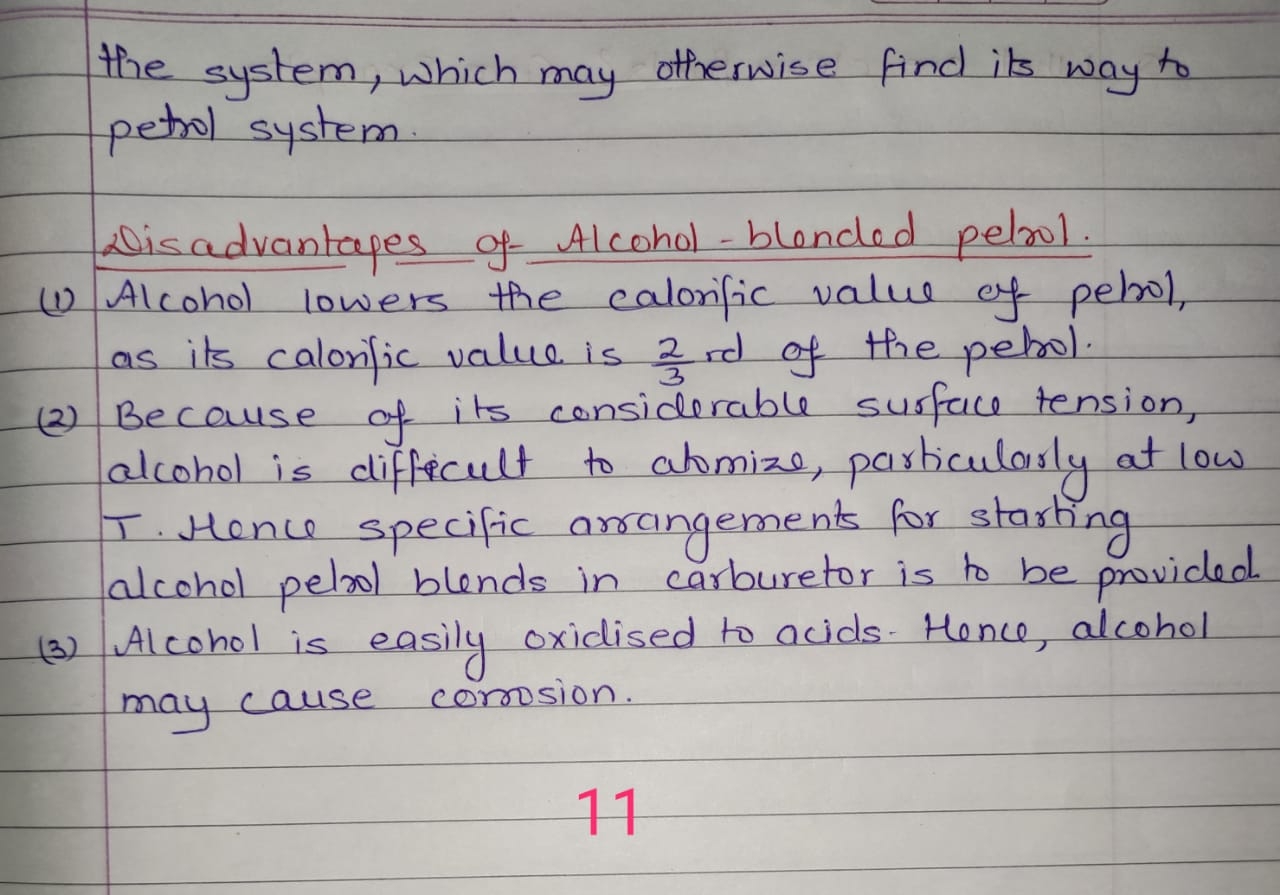 the system, which may otherwise find its way to
petrol system.
Disadvantages of Alcohol-blended petrol.
(1) Alcohol lowers the calorific value of petrol,
as its calorific value is 2/3 rd of the petrol.
(2) Because of its considerable surface tension,
alcohol is difficult to atomize, particularly at low
T. Hence specific arrangements for starting
alcohol petrol blends in carburetor is to be provided
(3) Alcohol is easily oxidised to acids. Hence, alcohol
may cause corrosion.
11